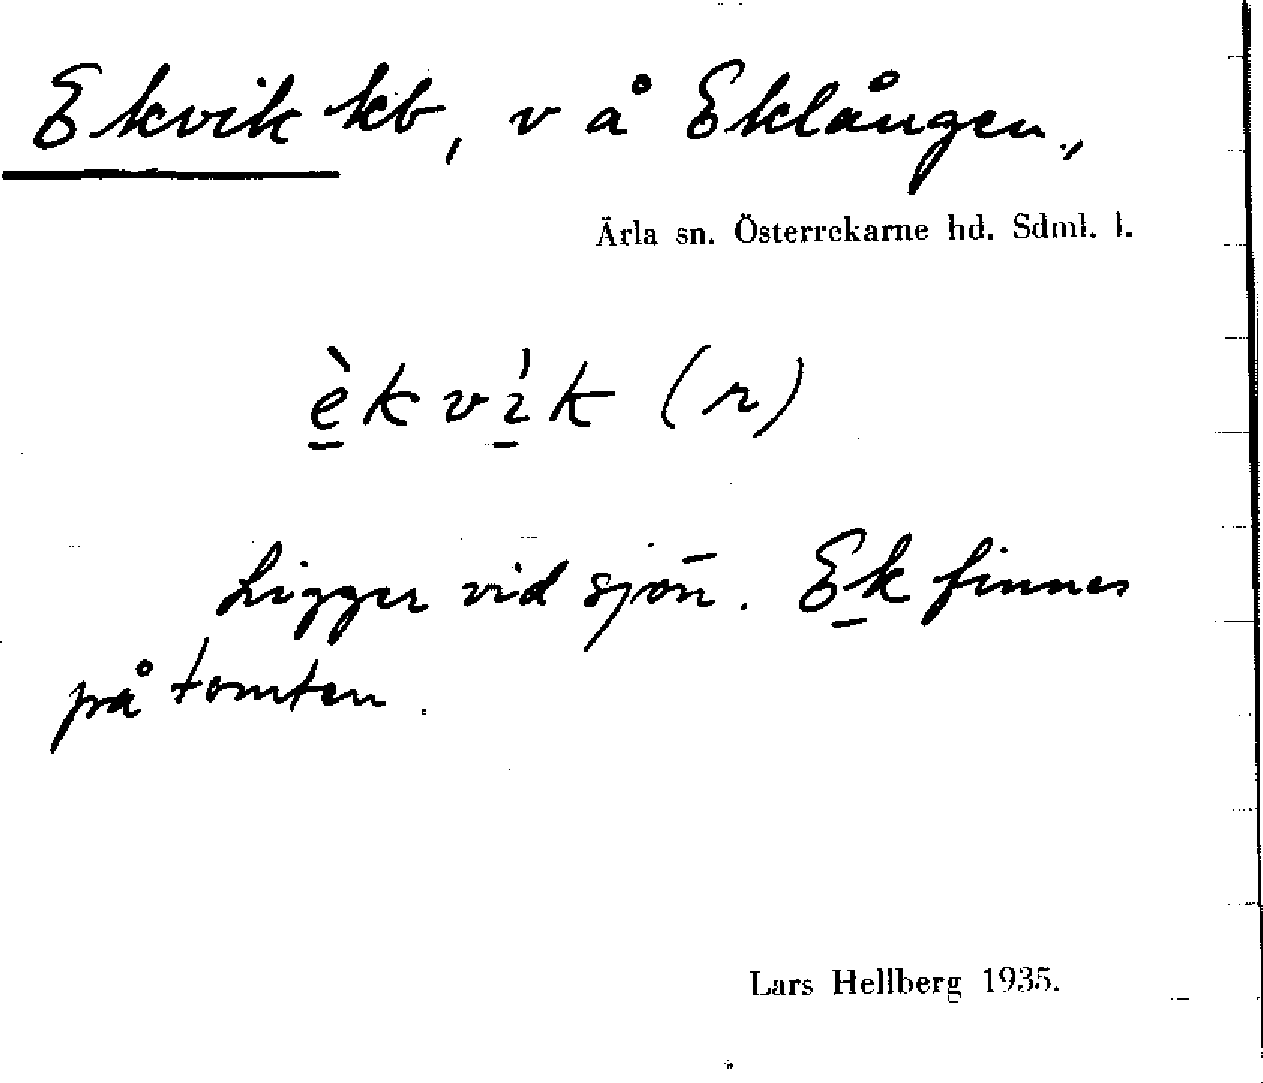 Ekvik kb, v å Eklången.,
Ärla sn. Österrekarne hd. Sdml. l.
è̱kvı̱́k (r)
Ligger vid sjön. Ek finnes
på tomten.
Lars Hellberg 1935.